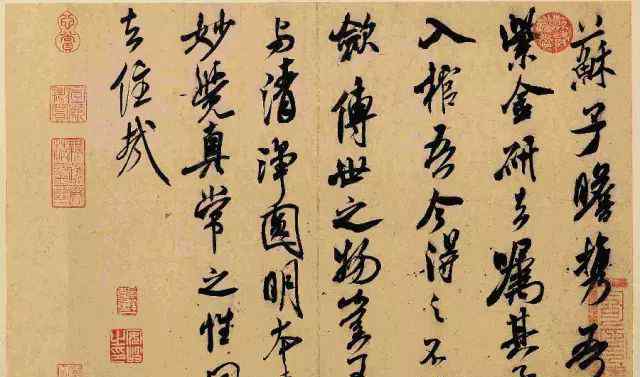 蘇子瞻携吾
紫金研去嘱其子
入棺吾今得之不
斂傳世之物豈可
与清淨圓明本
妙覺真常之性同
去住哉